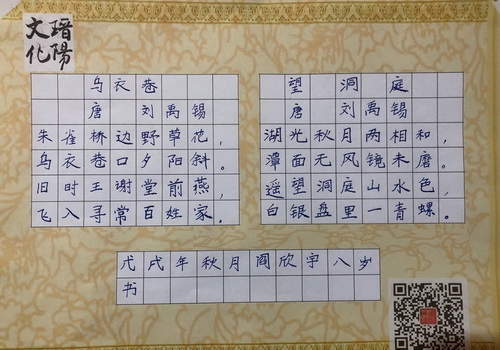 瑨陽
文化
乌衣巷
唐 刘禹锡
朱雀桥边野草花，
乌衣巷口夕阳斜。
旧时王谢堂前燕，
飞入寻常百姓家。
望洞庭
唐 刘禹锡
湖光秋月两相和，
潭面无风镜未磨。
遥望洞庭山水色，
白银盘里一青螺。
戊戌年秋月阎欣宇八岁
书